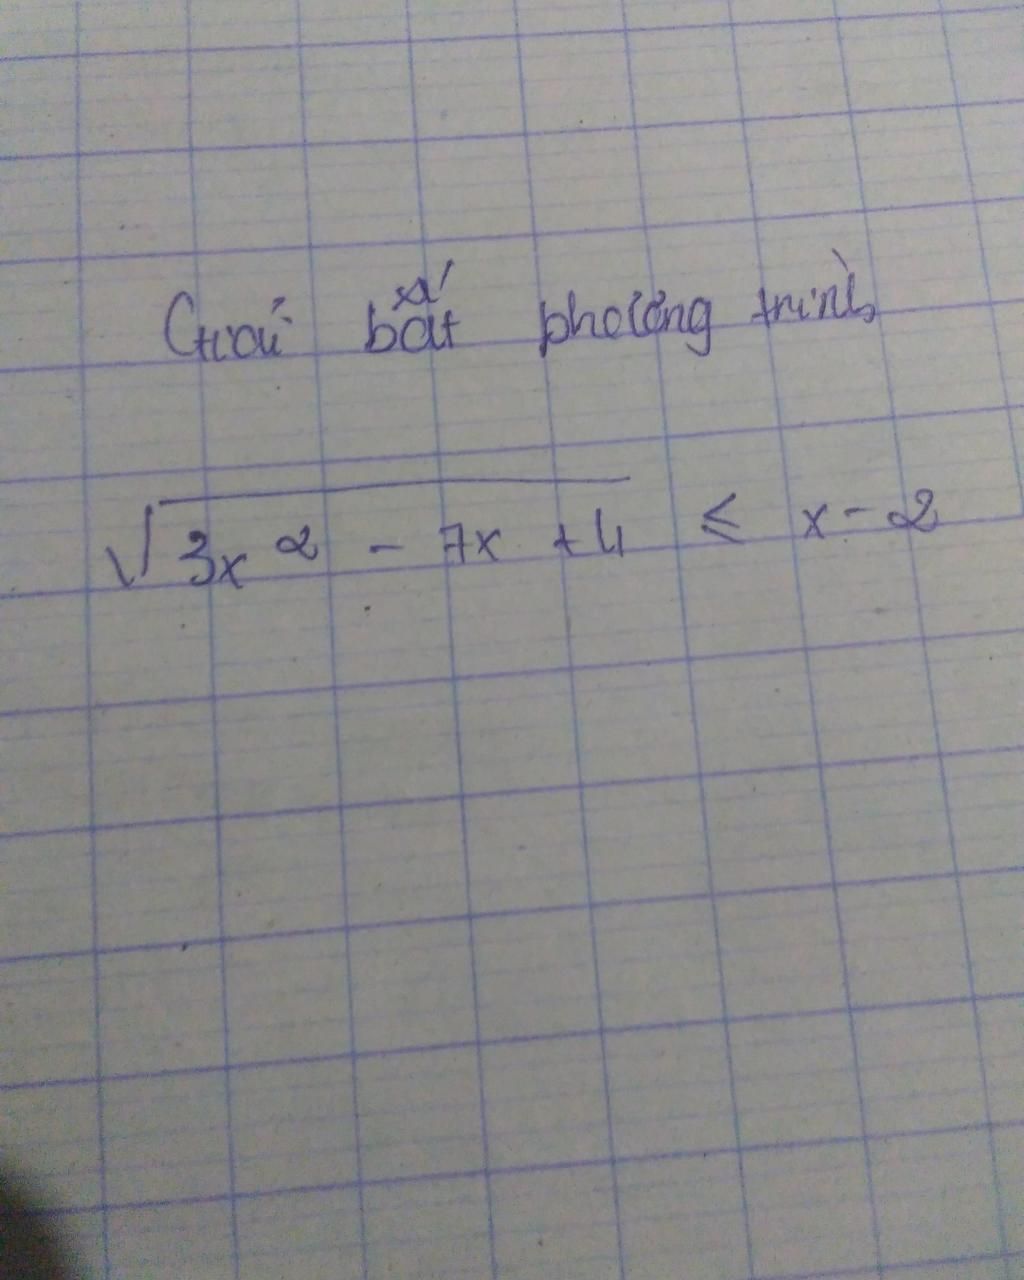 Giải bất phương trình
√3x² - 7x + 4 ≤ x - 2